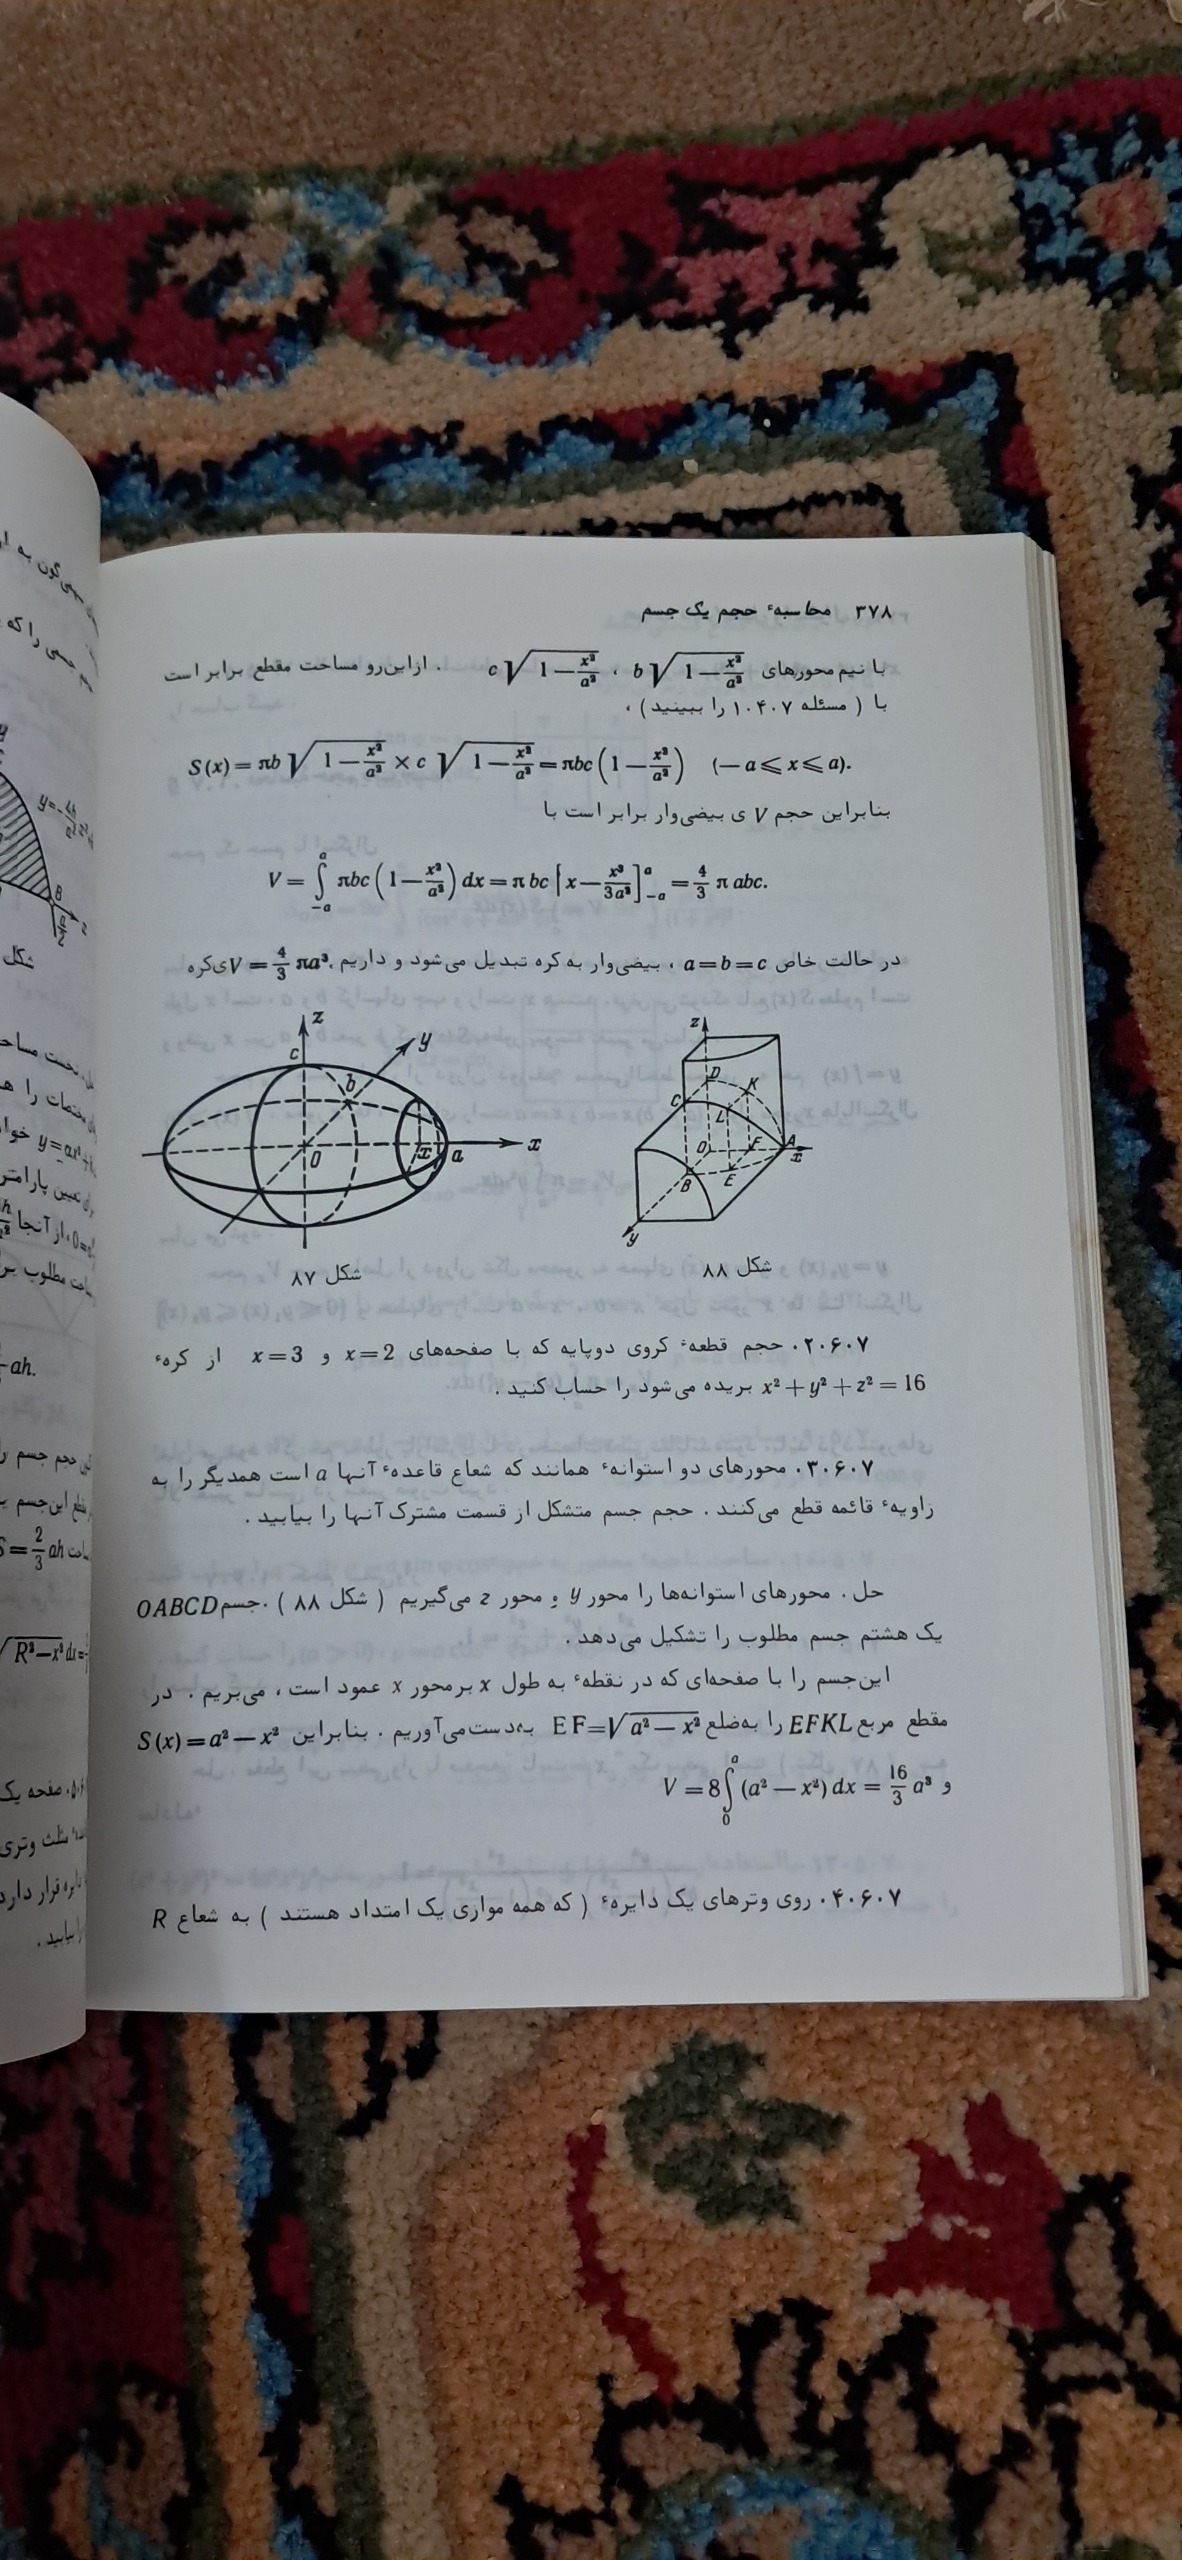 ۳۷۸ محاسبهٔ حجم یک جسم
با نیم‌محورهای b√(1−x²/a²) ، c√(1−x²/a²) . ازاین‌رو مساحت مقطع برابر است
با ( مسئله ۱۰۴۰۷ را ببینید ) ،
S(x) = πb√(1−x²/a²) × c√(1−x²/a²) = πbc(1−x²/a²) (−a ⩽ x ⩽ a).
بنابراین حجم V ی بیضی‌وار برابر است با
V = ∫₋ₐᵃ πbc(1−x²/a²) dx = πbc[x−x³/3a²]₋ₐᵃ = 4/3 πabc.
در حالت خاص a=b=c ، بیضی‌وار به کره تبدیل می‌شود و داریم V = 4/3 πa³.ی‌کره
z
c
y
b
O
x
a
x
شکل ۸۷
z
D
K
C
L
O
F
A
x
B
E
y
شکل ۸۸
۲۰۶۰۷. حجم قطعهٔ کروی دوپایه که با صفحه‌های x=2 و x=3 از کرهٔ
x² + y² + z² = 16 بریده می‌شود را حساب کنید .
۳۰۶۰۷. محورهای دو استوانهٔ همانند که شعاع قاعدهٔ آنها a است همدیگر را به
زاویهٔ قائمه قطع می‌کنند . حجم جسم متشکل از قسمت مشترک آنها را بیابید .
حل . محورهای استوانه‌ها را محور y و محور z می‌گیریم ( شکل ۸۸ ) . جسم OABCD
یک هشتم جسم مطلوب را تشکیل می‌دهد .
این‌جسم را با صفحه‌ای که در نقطهٔ به طول x بر محور x عمود است ، می‌بریم . در
مقطع مربع EFKL را به‌ضلع EF=√(a² − x²) به‌دست‌می‌آوریم . بنابراین S(x) = a² − x²
و V = 8∫₀ᵃ (a² − x²) dx = 16/3 a³
۴۰۶۰۷. روی وترهای یک دایرهٔ ( که همه موازی یک امتداد هستند ) به شعاع R